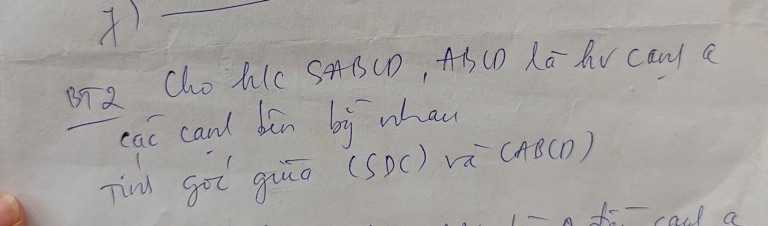 7)
BT2 Cho h/c SABCD, ABCD là hv cạnh a
các cạnh bên bg nhau
Tính góc giữa (SDC) và (ABCD)
cạnh a